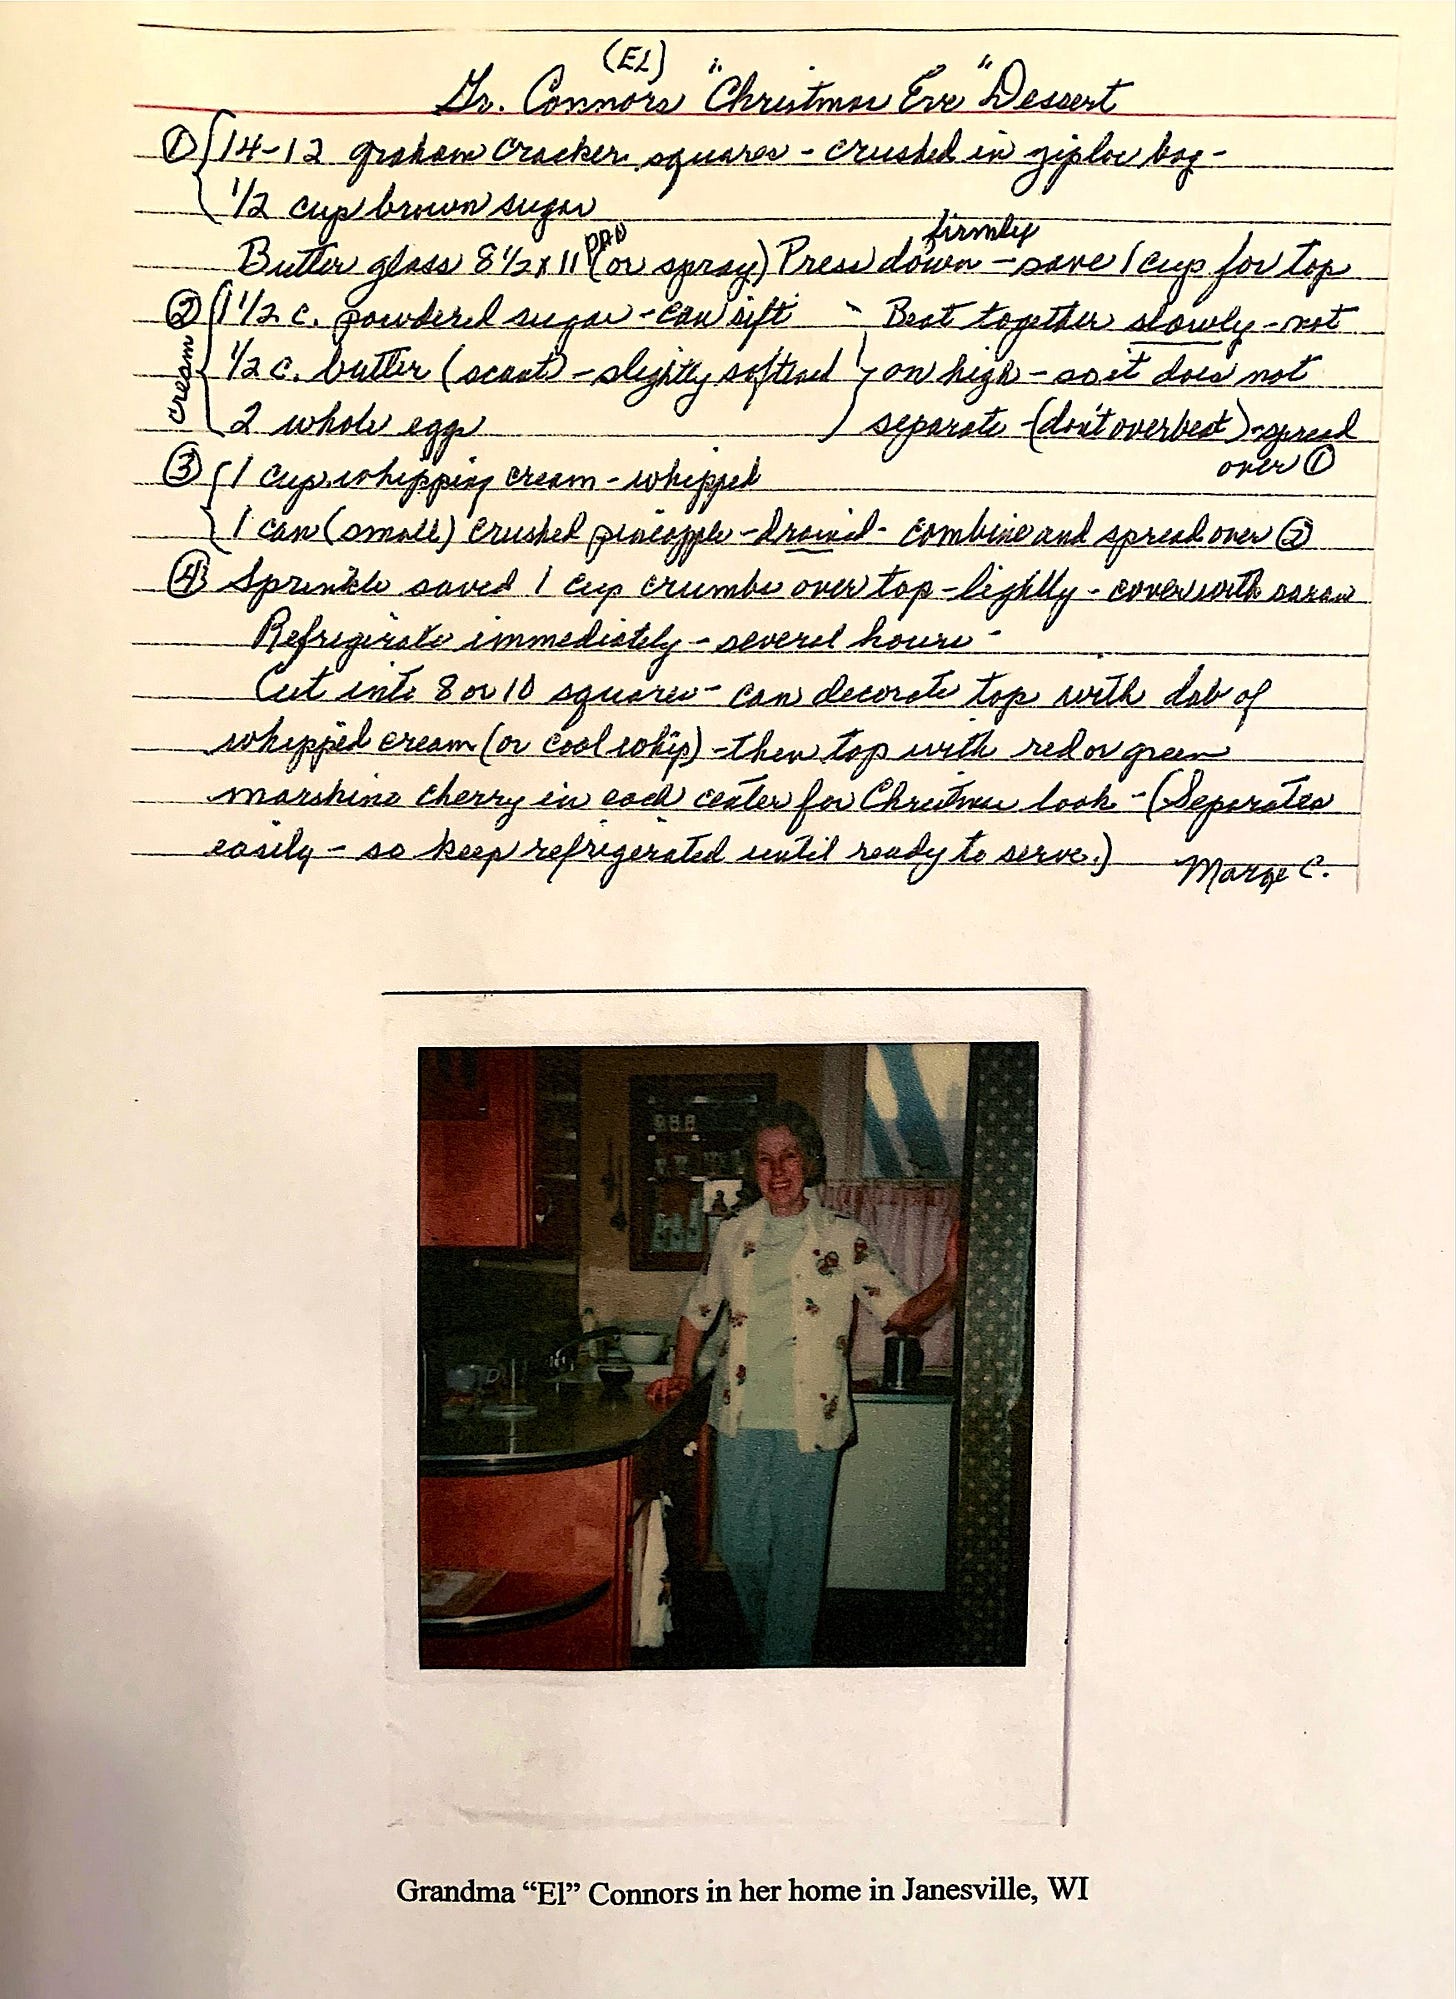 (EL)
Gr. Connors "Christmas Eve" Dessert
① 14-12 graham cracker squares - crushed in ziploc bag -
1/2 cup brown sugar
Butter glass 8 1/2 x 11 PAN (or spray) Press down firmly - save 1 cup for top
② 1 1/2 c. powdered sugar - can sift - Beat together slowly - not
cream 1/2 c. butter (scant) - slightly softened on high - so it does not
2 whole eggs separate - (don't overbeat) - spread
over ①
③ 1 cup whipping cream - whipped
1 can (small) crushed pineapple - drained - combine and spread over ②
④ Sprinkle saved 1 cup crumbs over top - lightly - cover with saran
Refrigirate immediately - several hours -
Cut into 8 or 10 squares - can decorate top with dab of
whipped cream (or cool whip) - then top with red or green
marshino cherry in each center for Christmas look - (Separates
easily - so keep refrigerated until ready to serve.) Marge C.
Grandma “El” Connors in her home in Janesville, WI